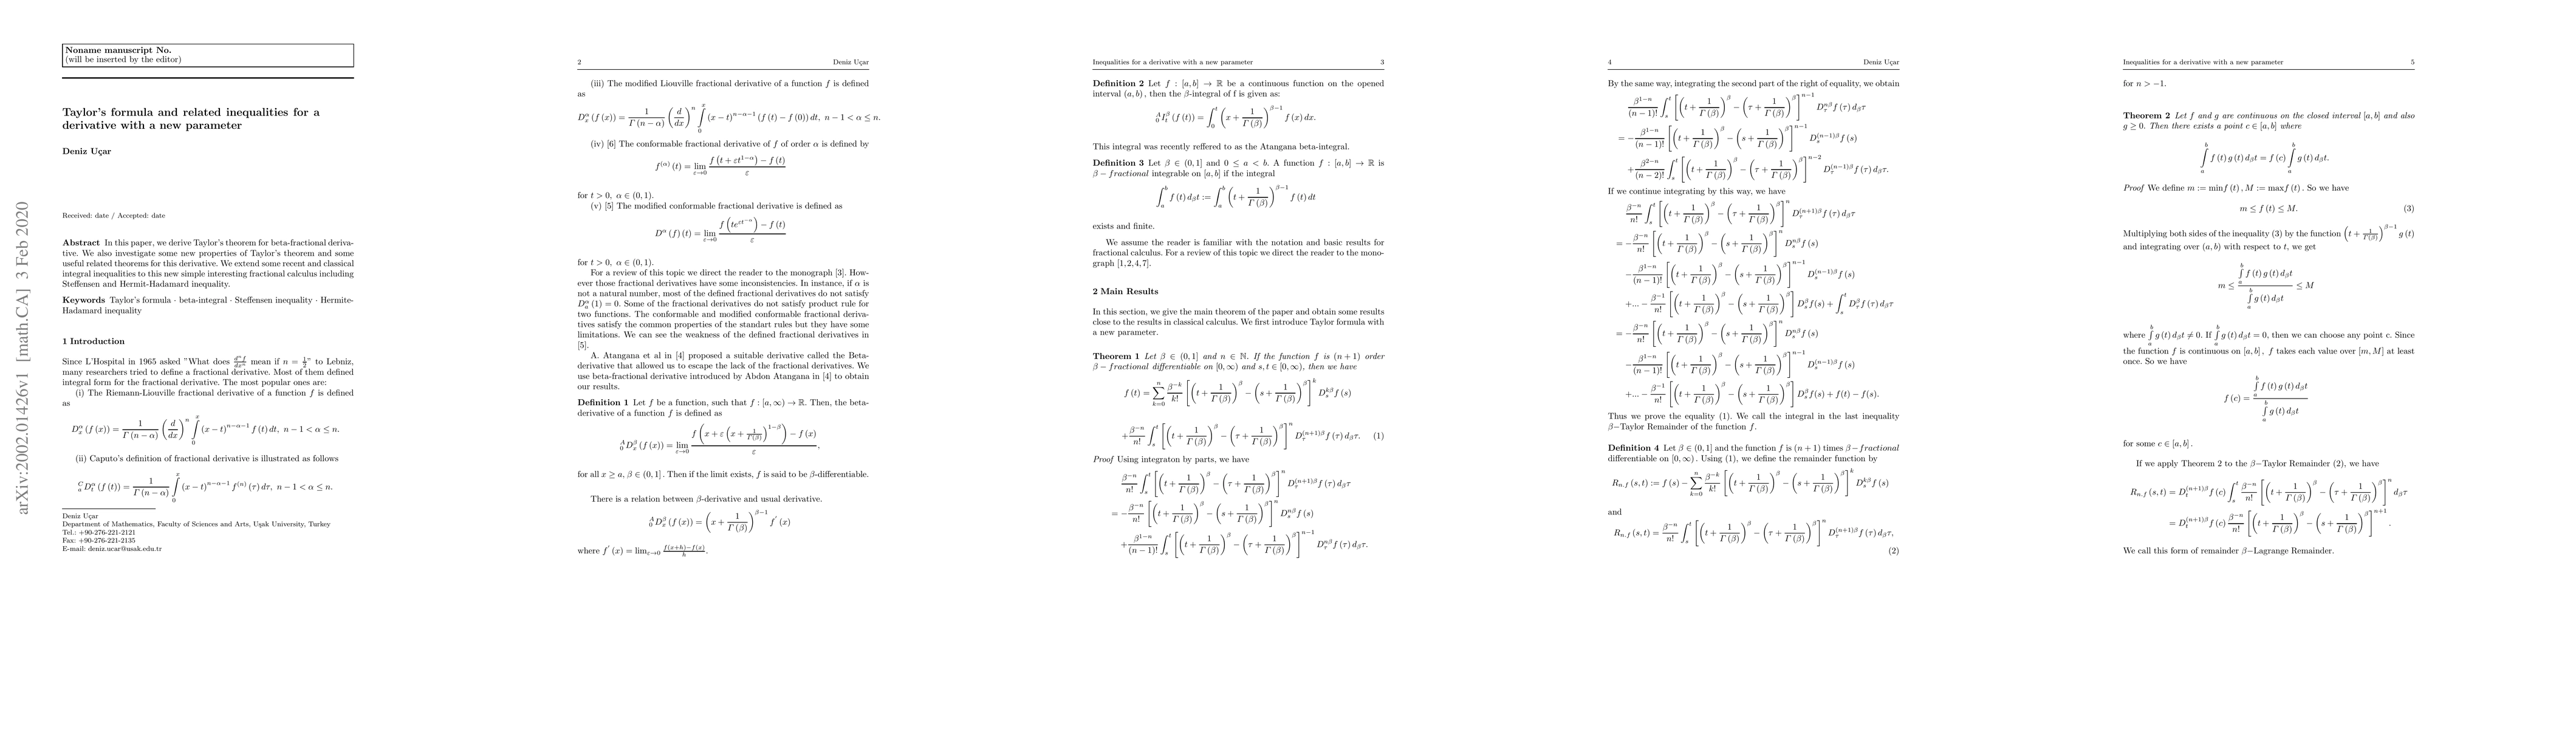 arXiv:2002.01426v1 [math.CA] 3 Feb 2020
Noname manuscript No.
(will be inserted by the editor)
Taylor's formula and related inequalities for a
derivative with a new parameter
Deniz Uçar
Received: date / Accepted: date
Abstract In this paper, we derive Taylor's theorem for beta-fractional deriva-
tive. We also investigate some new properties of Taylor's theorem and some
useful related theorems for this derivative. We extend some recent and classical
integral inequalities to this new simple interesting fractional calculus including
Steffensen and Hermit-Hadamard inequality.
Keywords Taylor's formula · beta-integral · Steffensen inequality · Hermite-
Hadamard inequality
1 Introduction
Since L'Hospital in 1965 asked "What does \frac{d^n f}{dx^n} mean if n = \frac{1}{2}" to Lebniz,
many researchers tried to define a fractional derivative. Most of them defined
integral form for the fractional derivative. The most popular ones are:
(i) The Riemann-Liouville fractional derivative of a function f is defined
as
D_x^α (f (x)) = \frac{1}{Γ (n − α)} \left(\frac{d}{dx}\right)^n \int_0^x (x − t)^{n−α−1} f (t) dt, n − 1 < α ≤ n.
(ii) Caputo's definition of fractional derivative is illustrated as follows
{}_a^C D_t^α (f (t)) = \frac{1}{Γ (n − α)} \int_0^x (x − t)^{n−α−1} f^{(n)} (τ) dτ, n − 1 < α ≤ n.
Deniz Uçar
Department of Mathematics, Faculty of Sciences and Arts, Uşak University, Turkey
Tel.: +90-276-221-2121
Fax: +90-276-221-2135
E-mail: deniz.ucar@usak.edu.tr
2 Deniz Uçar
(iii) The modified Liouville fractional derivative of a function f is defined
as
D_x^α (f (x)) = \frac{1}{Γ (n − α)} \left(\frac{d}{dx}\right)^n \int_0^x (x − t)^{n−α−1} (f (t) − f (0)) dt, n − 1 < α ≤ n.
(iv) [6] The conformable fractional derivative of f of order α is defined by
f^{(α)} (t) = \lim_{ε→0} \frac{f (t + εt^{1−α}) − f (t)}{ε}
for t > 0, α ∈ (0, 1).
(v) [5] The modified conformable fractional derivative is defined as
D^α (f) (t) = \lim_{ε→0} \frac{f (te^{εt^{−α}}) − f (t)}{ε}
for t > 0, α ∈ (0, 1).
For a review of this topic we direct the reader to the monograph [3]. How-
ever those fractional derivatives have some inconsistencies. In instance, if α is
not a natural number, most of the defined fractional derivatives do not satisfy
D_a^α (1) = 0. Some of the fractional derivatives do not satisfy product rule for
two functions. The conformable and modified conformable fractional deriva-
tives satisfy the common properties of the standart rules but they have some
limitations. We can see the weakness of the defined fractional derivatives in
[5].
A. Atangana et al in [4] proposed a suitable derivative called the Beta-
derivative that allowed us to escape the lack of the fractional derivatives. We
use beta-fractional derivative introduced by Abdon Atangana in [4] to obtain
our results.
Definition 1 Let f be a function, such that f : [a, ∞) → ℝ. Then, the beta-
derivative of a function f is defined as
{}_0^A D_x^β (f (x)) = \lim_{ε→0} \frac{f \left(x + ε \left(x + \frac{1}{Γ(β)}\right)^{1−β}\right) − f (x)}{ε},
for all x ≥ a, β ∈ (0, 1]. Then if the limit exists, f is said to be β-differentiable.
There is a relation between β-derivative and usual derivative.
{}_0^A D_x^β (f (x)) = \left(x + \frac{1}{Γ (β)}\right)^{β−1} f' (x)
where f' (x) = \lim_{ε→0} \frac{f(x+h)−f(x)}{h}.
Inequalities for a derivative with a new parameter 3
Definition 2 Let f : [a, b] → ℝ be a continuous function on the opened
interval (a, b), then the β-integral of f is given as:
{}_0^A I_t^β (f (t)) = \int_0^t \left(x + \frac{1}{Γ (β)}\right)^{β−1} f (x) dx.
This integral was recently reffered to as the Atangana beta-integral.
Definition 3 Let β ∈ (0, 1] and 0 ≤ a < b. A function f : [a, b] → ℝ is
β − fractional integrable on [a, b] if the integral
\int_a^b f (t) d_β t := \int_a^b \left(t + \frac{1}{Γ (β)}\right)^{β−1} f (t) dt
exists and finite.
We assume the reader is familiar with the notation and basic results for
fractional calculus. For a review of this topic we direct the reader to the mono-
graph [1,2,4,7].
2 Main Results
In this section, we give the main theorem of the paper and obtain some results
close to the results in classical calculus. We first introduce Taylor formula with
a new parameter.
Theorem 1 Let β ∈ (0, 1] and n ∈ ℕ. If the function f is (n + 1) order
β − fractional differentiable on [0, ∞) and s, t ∈ [0, ∞), then we have
f (t) = \sum_{k=0}^n \frac{β^{−k}}{k!} \left[\left(t + \frac{1}{Γ (β)}\right)^β − \left(s + \frac{1}{Γ (β)}\right)^β\right]^k D_s^{kβ} f (s)
+ \frac{β^{−n}}{n!} \int_s^t \left[\left(t + \frac{1}{Γ (β)}\right)^β − \left(τ + \frac{1}{Γ (β)}\right)^β\right]^n D_τ^{(n+1)β} f (τ) d_β τ. (1)
Proof Using integraton by parts, we have
\frac{β^{−n}}{n!} \int_s^t \left[\left(t + \frac{1}{Γ (β)}\right)^β − \left(τ + \frac{1}{Γ (β)}\right)^β\right]^n D_τ^{(n+1)β} f (τ) d_β τ
= − \frac{β^{−n}}{n!} \left[\left(t + \frac{1}{Γ (β)}\right)^β − \left(s + \frac{1}{Γ (β)}\right)^β\right]^n D_s^{nβ} f (s)
+ \frac{β^{1−n}}{(n − 1)!} \int_s^t \left[\left(t + \frac{1}{Γ (β)}\right)^β − \left(τ + \frac{1}{Γ (β)}\right)^β\right]^{n−1} D_τ^{nβ} f (τ) d_β τ.
4 Deniz Uçar
By the same way, integrating the second part of the right of equality, we obtain
\frac{β^{1−n}}{(n − 1)!} \int_s^t \left[\left(t + \frac{1}{Γ (β)}\right)^β − \left(τ + \frac{1}{Γ (β)}\right)^β\right]^{n−1} D_τ^{nβ} f (τ) d_β τ
= − \frac{β^{1−n}}{(n − 1)!} \left[\left(t + \frac{1}{Γ (β)}\right)^β − \left(s + \frac{1}{Γ (β)}\right)^β\right]^{n−1} D_s^{(n−1)β} f (s)
+ \frac{β^{2−n}}{(n − 2)!} \int_s^t \left[\left(t + \frac{1}{Γ (β)}\right)^β − \left(τ + \frac{1}{Γ (β)}\right)^β\right]^{n−2} D_τ^{(n−1)β} f (τ) d_β τ.
If we continue integrating by this way, we have
\frac{β^{−n}}{n!} \int_s^t \left[\left(t + \frac{1}{Γ (β)}\right)^β − \left(τ + \frac{1}{Γ (β)}\right)^β\right]^n D_τ^{(n+1)β} f (τ) d_β τ
= − \frac{β^{−n}}{n!} \left[\left(t + \frac{1}{Γ (β)}\right)^β − \left(s + \frac{1}{Γ (β)}\right)^β\right]^n D_s^{nβ} f (s)
− \frac{β^{1−n}}{(n − 1)!} \left[\left(t + \frac{1}{Γ (β)}\right)^β − \left(s + \frac{1}{Γ (β)}\right)^β\right]^{n−1} D_s^{(n−1)β} f (s)
+... − \frac{β^{−1}}{n!} \left[\left(t + \frac{1}{Γ (β)}\right)^β − \left(s + \frac{1}{Γ (β)}\right)^β\right] D_s^β f(s) + \int_s^t D_τ^β f (τ) d_β τ
= − \frac{β^{−n}}{n!} \left[\left(t + \frac{1}{Γ (β)}\right)^β − \left(s + \frac{1}{Γ (β)}\right)^β\right]^n D_s^{nβ} f (s)
− \frac{β^{1−n}}{(n − 1)!} \left[\left(t + \frac{1}{Γ (β)}\right)^β − \left(s + \frac{1}{Γ (β)}\right)^β\right]^{n−1} D_s^{(n−1)β} f (s)
+... − \frac{β^{−1}}{n!} \left[\left(t + \frac{1}{Γ (β)}\right)^β − \left(s + \frac{1}{Γ (β)}\right)^β\right] D_s^β f(s) + f(t) − f(s).
Thus we prove the equality (1). We call the integral in the last inequality
β−Taylor Remainder of the function f.
Definition 4 Let β ∈ (0, 1] and the function f is (n + 1) times β − fractional
differentiable on [0, ∞). Using (1), we define the remainder function by
R_{n,f} (s, t) := f (s) − \sum_{k=0}^n \frac{β^{−k}}{k!} \left[\left(t + \frac{1}{Γ (β)}\right)^β − \left(s + \frac{1}{Γ (β)}\right)^β\right]^k D_s^{kβ} f (s)
and
R_{n,f} (s, t) = \frac{β^{−n}}{n!} \int_s^t \left[\left(t + \frac{1}{Γ (β)}\right)^β − \left(τ + \frac{1}{Γ (β)}\right)^β\right]^n D_τ^{(n+1)β} f (τ) d_β τ,
(2)
Inequalities for a derivative with a new parameter 5
for n > −1.
Theorem 2 Let f and g are continuous on the closed interval [a, b] and also
g ≥ 0. Then there exists a point c ∈ [a, b] where
\int_a^b f (t) g (t) d_β t = f (c) \int_a^b g (t) d_β t.
Proof We define m := minf (t), M := maxf (t). So we have
m ≤ f (t) ≤ M. (3)
Multiplying both sides of the inequality (3) by the function \left(t + \frac{1}{Γ(β)}\right)^{β−1} g (t)
and integrating over (a, b) with respect to t, we get
m ≤ \frac{\int_a^b f (t) g (t) d_β t}{\int_a^b g (t) d_β t} ≤ M
where \int_a^b g (t) d_β t ≠ 0. If \int_a^b g (t) d_β t = 0, then we can choose any point c. Since
the function f is continuous on [a, b], f takes each value over [m, M] at least
once. So we have
f (c) = \frac{\int_a^b f (t) g (t) d_β t}{\int_a^b g (t) d_β t}
for some c ∈ [a, b].
If we apply Theorem 2 to the β−Taylor Remainder (2), we have
R_{n,f} (s, t) = D_t^{(n+1)β} f (c) \int_s^t \frac{β^{−n}}{n!} \left[\left(t + \frac{1}{Γ (β)}\right)^β − \left(τ + \frac{1}{Γ (β)}\right)^β\right]^n d_β τ
= D_t^{(n+1)β} f (c) \frac{β^{−n}}{n!} \left[\left(t + \frac{1}{Γ (β)}\right)^β − \left(s + \frac{1}{Γ (β)}\right)^β\right]^{n+1}.
We call this form of remainder β−Lagrange Remainder.